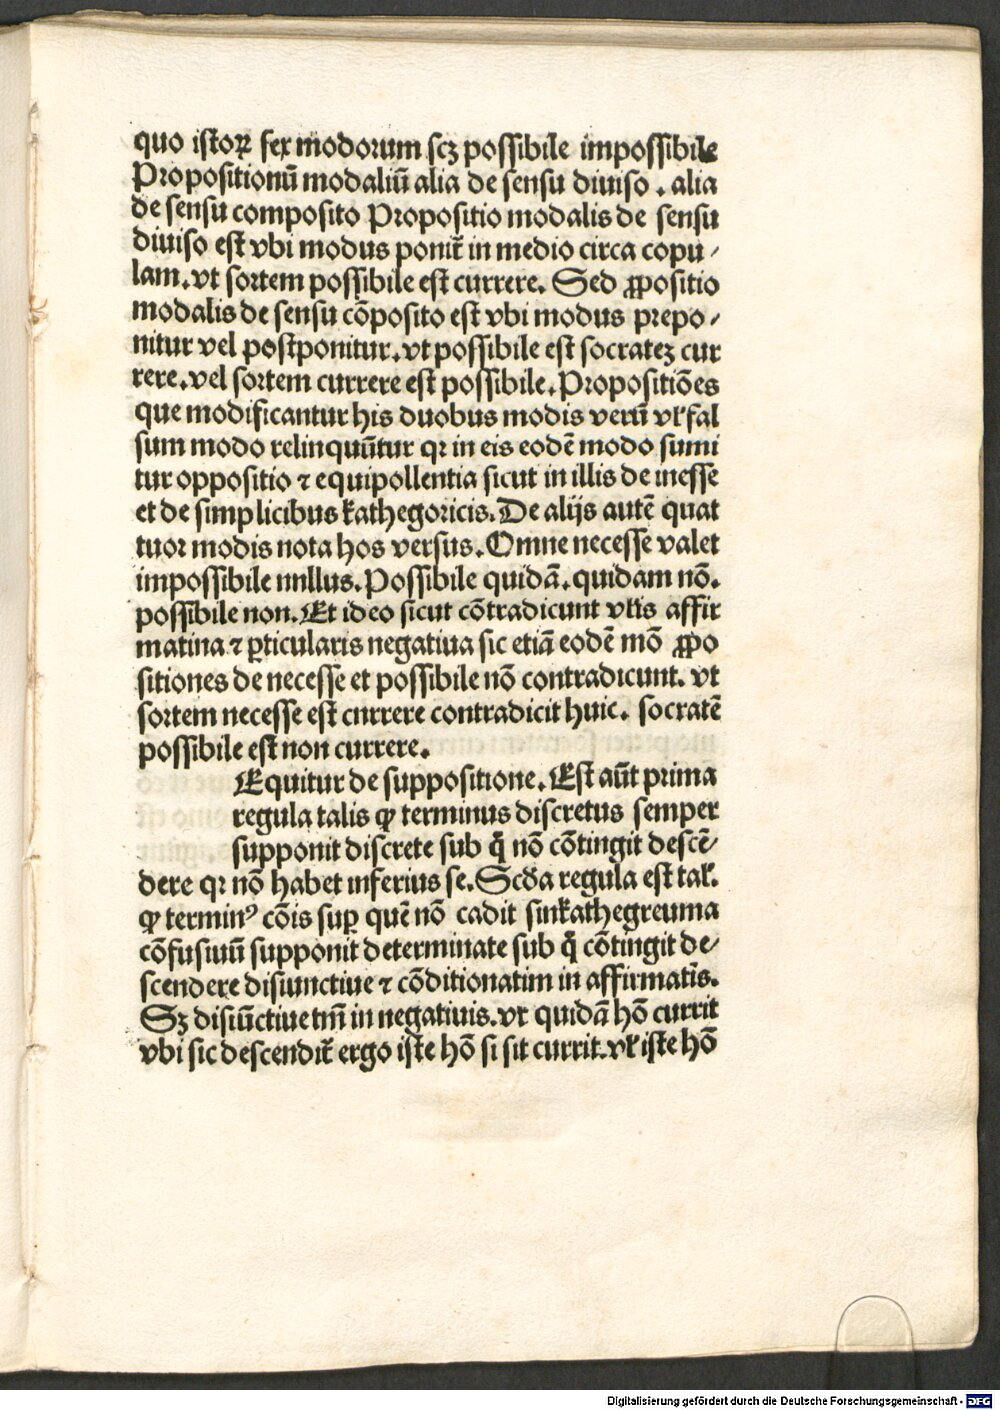 quo istoꝝ sex modorum scꝫ possibile impossibile
Propositionū modaliū alia de sensu diuiso . alia
de sensu composito Propositio modalis de sensu
diuiso est vbi modus ponit̄ in medio circa copu /
lam. vt sortem possibile est currere. Sed ꝓpositio
modalis de sensu cōposito est vbi modus prepo /
nitur vel postponitur. vt possibile est socrateꝫ cur
rere. vel sortem currere est possibile. Propositiōes
que modificantur his duobus modis verū vl̕ fal
sum modo relinquūtur qꝛ in eis eodē modo sumi
tur oppositio ⁊ equipollentia sicut in illis de inesse
et de simplicibus kathegoricis. De alijs autē quat
tuor modis nota hos versus. Omne necesse valet
impossibile nnllus. Possibile quidā. quidam nō.
possibile non. Et ideo sicut cōtradicunt vl̄is affir
matina ⁊ ꝑticularis negatiua sic etiā eodē mō ꝓpo
sitiones de necesse et possibile nō contradicunt. vt
sortem necesse est cnrrere contradicit huic. socratē
possibile est non currere.
Equitur de suppositione. Est aūt prima
regula talis ꝙ terminus discretus semper
supponit discrete sub q̄ nō cōtingit descē/
dere qꝛ nō habet inferius se. Scd̄a regula est tal̕.
ꝙ terminꝰ cōis suꝑ quē nō cadit sinkathegreuma
cōfusiuū supponit determinate sub q̄ cōtingit de/
scendere disiunctiue ⁊ cōditionatim in affirmatīs.
Sꝫ disiūctiue tm̄ in negatiuis. vt quidā hō currit
vbi sic descendit̄ ergo iste hō si sit currit. vl̕ iste hō
Digitalisierung gefördert durch die Deutsche Forschungsgemeinschaft - DFG